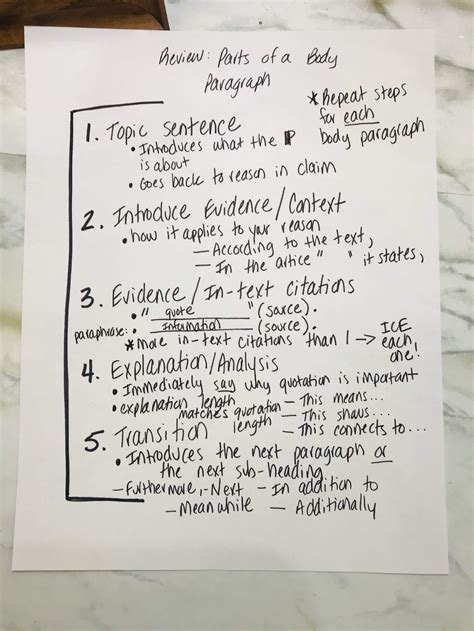 Review: Parts of a Body
Paragraph
* Repeat steps
for each
body paragraph
1. Topic sentence
• Introduces what the P
is about
• Goes back to reason in claim
2. Introduce Evidence/Context
• how it applies to your reason
— According to the text,
— In the artice " " it states,
3. Evidence/In-text Citations
• " quote " (source).
paraphrase: • Information (source).
* more in-text citations than 1 → ICE
each
one!
4. Explanation/Analysis
• Immediately say why quotation is important
• explanation length — This means...
matches quotation — This shows...
length — This connects to...
5. Transition
• Introduces the next paragraph or
the next sub-heading
— Furthermore, — Next — In addition to
— Meanwhile — Additionally